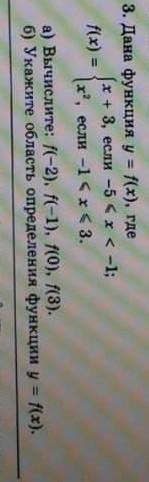 3. Дана функция y = f(x), где
f(x) = { x + 3, если −5 ⩽ x < −1;
x², если −1 ⩽ x ⩽ 3.
а) Вычислите: f(−2), f(−1), f(0), f(3).
б) Укажите область определения функции y = f(x).